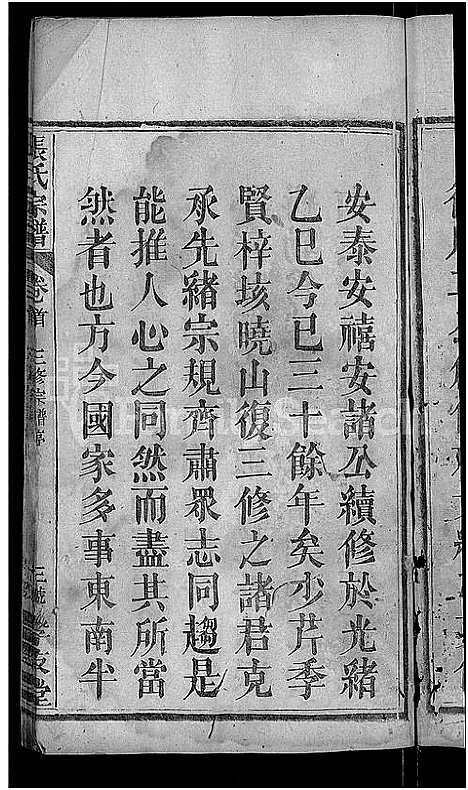 安泰安禧安諸公續修於光緒
乙巳今已三十餘年矣少芹季
賢梓垓曉山復三修之諸君克
承先緒宗規齊肅眾志同趨是
能推人心之同然而盡其所當
然者也方今國家多事東南半
張氏宗譜
卷首
三修宗譜序
堂
FamilySearch